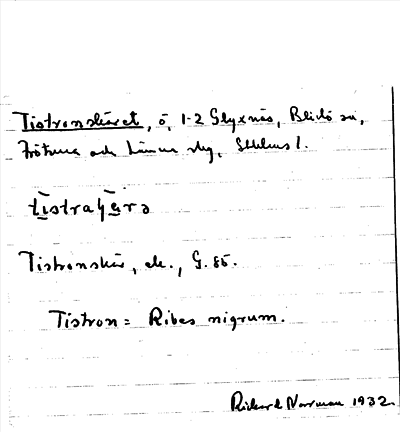 Tistronskäret, ö, 1-2 Glyxnäs, Blidö sn,
Frötuna och Länna skg, Sthlms l.
Tistronskär, ek., G. 85.
Tistron = Ribes nigrum.
Rickard Norrman 1932.